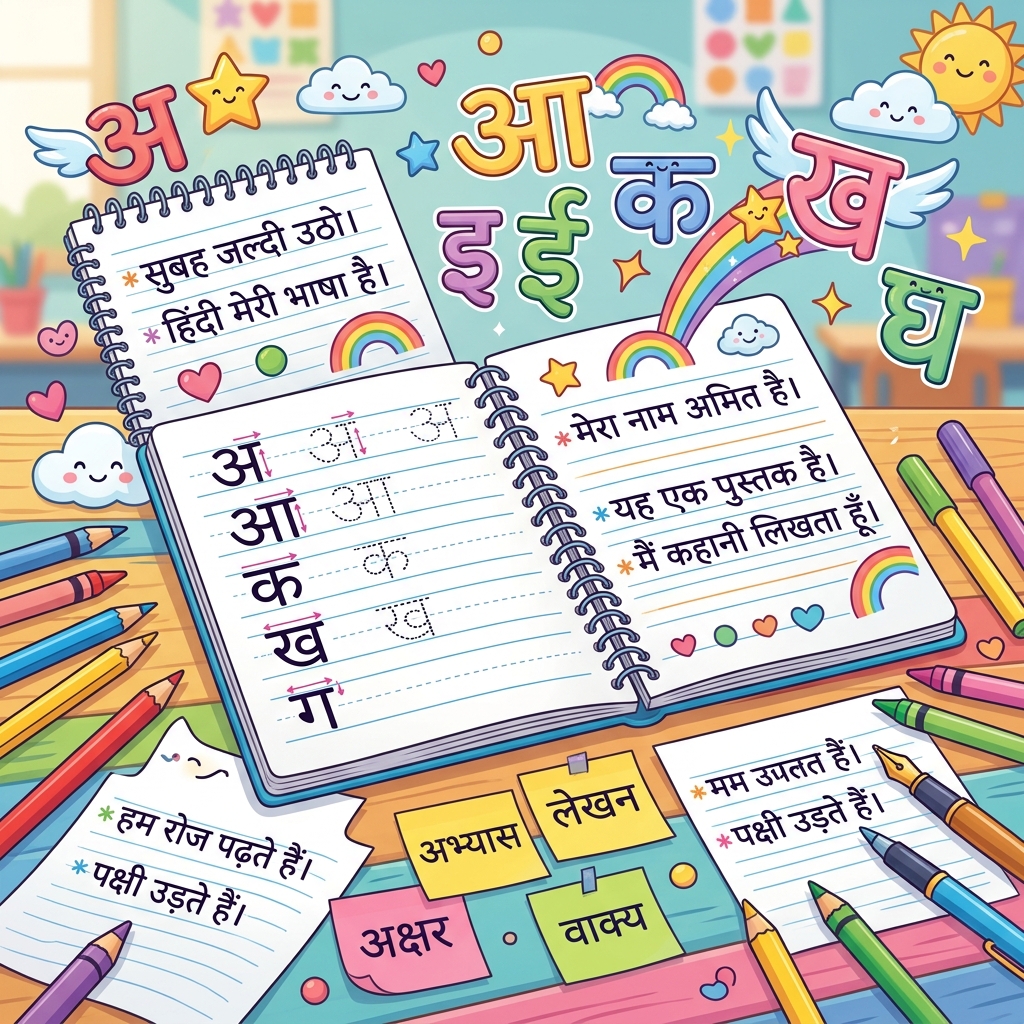 अ
आ
इ ई
क
ख
घ
सुबह जल्दी उठो।
हिंदी मेरी भाषा है।
अ अ अ
आ आ
क क
ख ख
ग
मेरा नाम अमित है।
यह एक पुस्तक है।
मैं कहानी लिखता हूँ।
हम रोज पढ़ते हैं।
पक्षी उड़ते हैं।
अभ्यास
लेखन
अक्षर
वाक्य
मम उपतत हैं।
पक्षी उड़ते हैं।